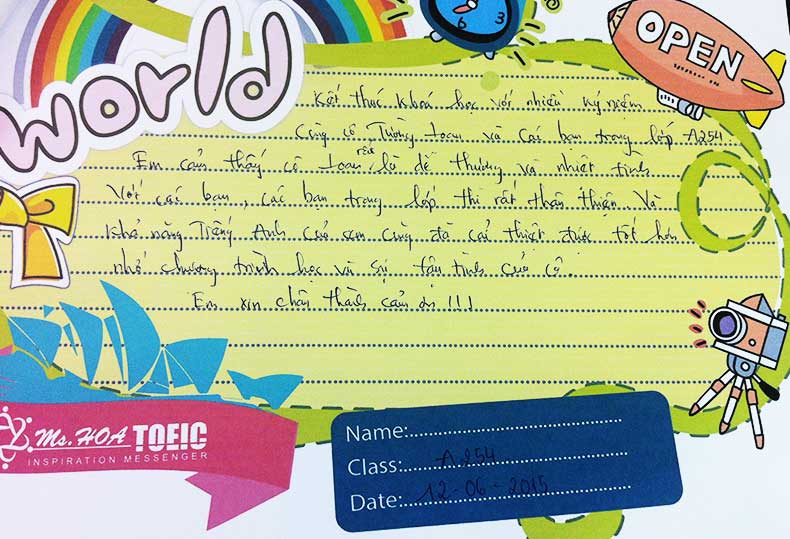 world
6
3
OPEN
Kết thúc khoá học với nhiều kỷ niệm
Cùng cô Tường Loan và các bạn trong lớp A254
Em cảm thấy cô Loan rất là dễ thương và nhiệt tình
Với các bạn, các bạn trong lớp thì rất thân thiện. Và
khả năng Tiếng Anh của em cũng đã cải thiện được tốt hơn
nhờ chương trình học và sự tận tình của cô.
Em xin chân thành cảm ơn !!!
Ms. HOA TOEIC
INSPIRATION MESSENGER
Name:
Class: A254
Date: 12-06-2015